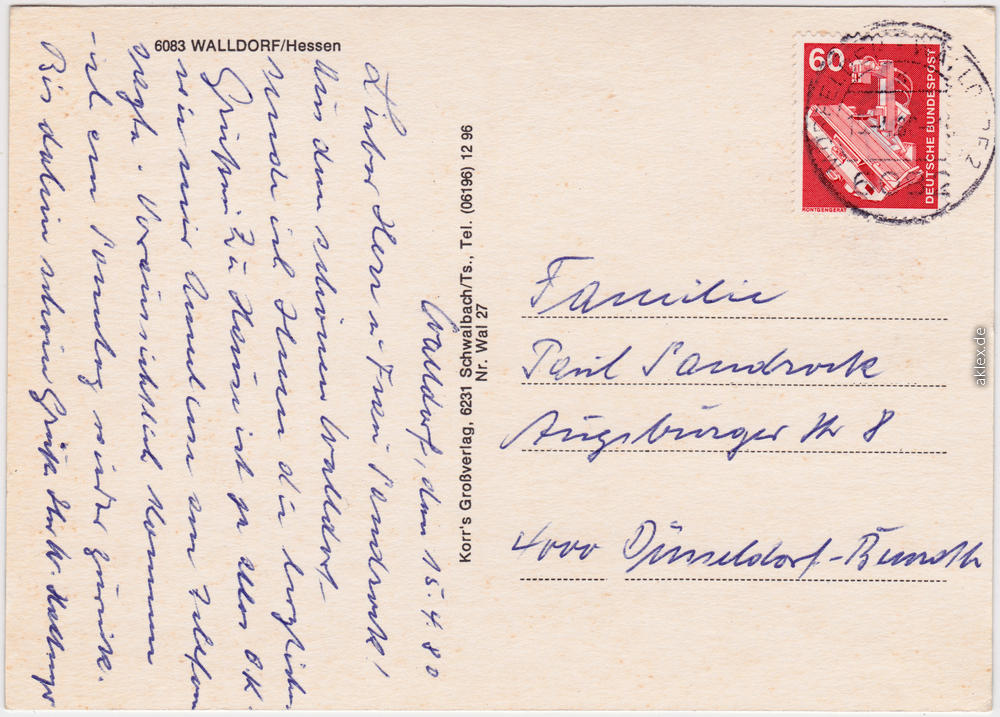 6083 WALLDORF/Hessen
Walldorf, den 15.4.80
Lieber Herr u Frau Sandrock!
Aus dem schönen Walldorf
sende ich Ihnen die herzlichen
Grüße. Zu Hause ist ja alles O.K
wie mir Annelise am Telefon
sagte. Voraussichtlich komme
ich am Sonntag wieder zurück.
Bis dahin schöne Grüße Ihr W.
Korr's Großverlag, 6231 Schwalbach/Ts., Tel. (06196) 12 96
Nr. Wal 27
60
DEUTSCHE BUNDESPOST
RÖNTGENGERÄT
Familie
Paul Sandrock
Augsburger Str 8
4000 Düsseldorf-Benrath
aklex.de